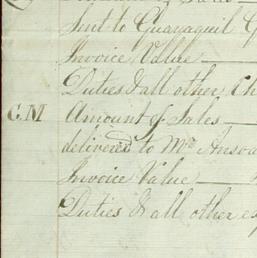 Sent to Guayaquil
Invoice Value
Duties & all other Ch
G.M Amount of Sales
delivered to Mr
Invoice Value
Duties & all other ex